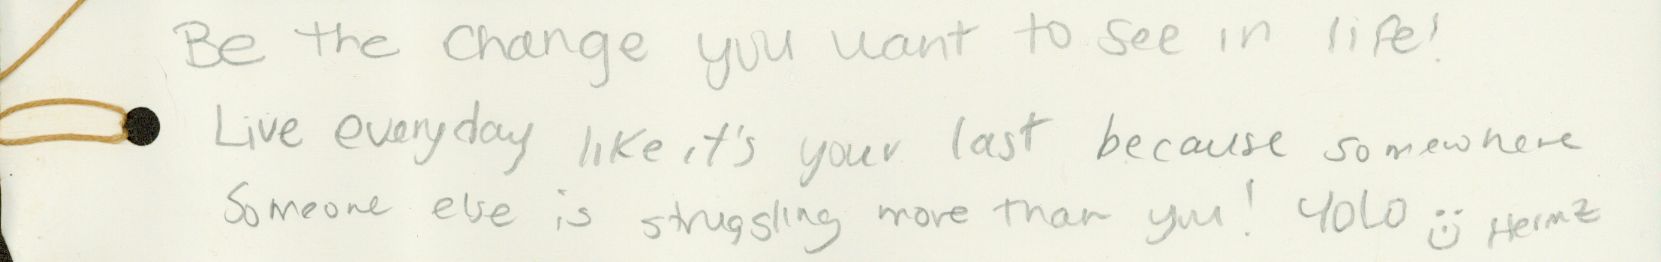 Be the change you want to see in life!
Live everyday like it's your last because somewhere
Someone else is struggling more than you! YOLO :) Hermz